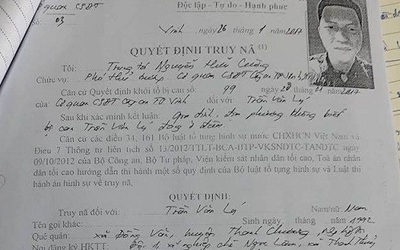 Cơ quan CSĐT
Độc lập - Tự do - Hạnh phúc
Số: 03
Vinh, ngày 26 tháng 1 năm 2017
QUYẾT ĐỊNH TRUY NÃ (1)
Tôi: Trung tá Nguyễn Hữu Cường
Chức vụ: Phó thủ trưởng Cơ quan CSĐT Công an TP Vinh
Căn cứ Quyết định khởi tố bị can số 99 ngày
của Cơ quan CSĐT Công an TP Vinh đối với Trần Văn Lý
Sau khi xác minh kết luận: Gia đình, địa phương không biết
bị can Trần Văn Lý đang ở đâu
Căn cứ các điều 34, 161 Bộ luật tố tụng hình sự nước CHXHCN Việt Nam và
Điều 7 Thông tư liên tịch số 13/2012/TTLT-BCA-BTP-VKSNDTC-TANDTC ngày
09/10/2012 của Bộ Công an, Bộ Tư pháp, Viện kiểm sát nhân dân tối cao, Toà án nhân
dân tối cao hướng dẫn thi hành một số quy định của Bộ luật tố tụng hình sự và Luật thi
hành án hình sự về truy nã,
QUYẾT ĐỊNH:
Truy nã đối với: Trần Văn Lý Nam/nữ: Nam
Tên gọi khác: Sinh ngày tháng năm 1992
Quê quán: xã Đồng Văn, huyện Thanh Chương,
Nơi đăng ký HKTT: Đội 1, xí nghiệp chè Ngọc Lâm, xã Thanh Thủy,